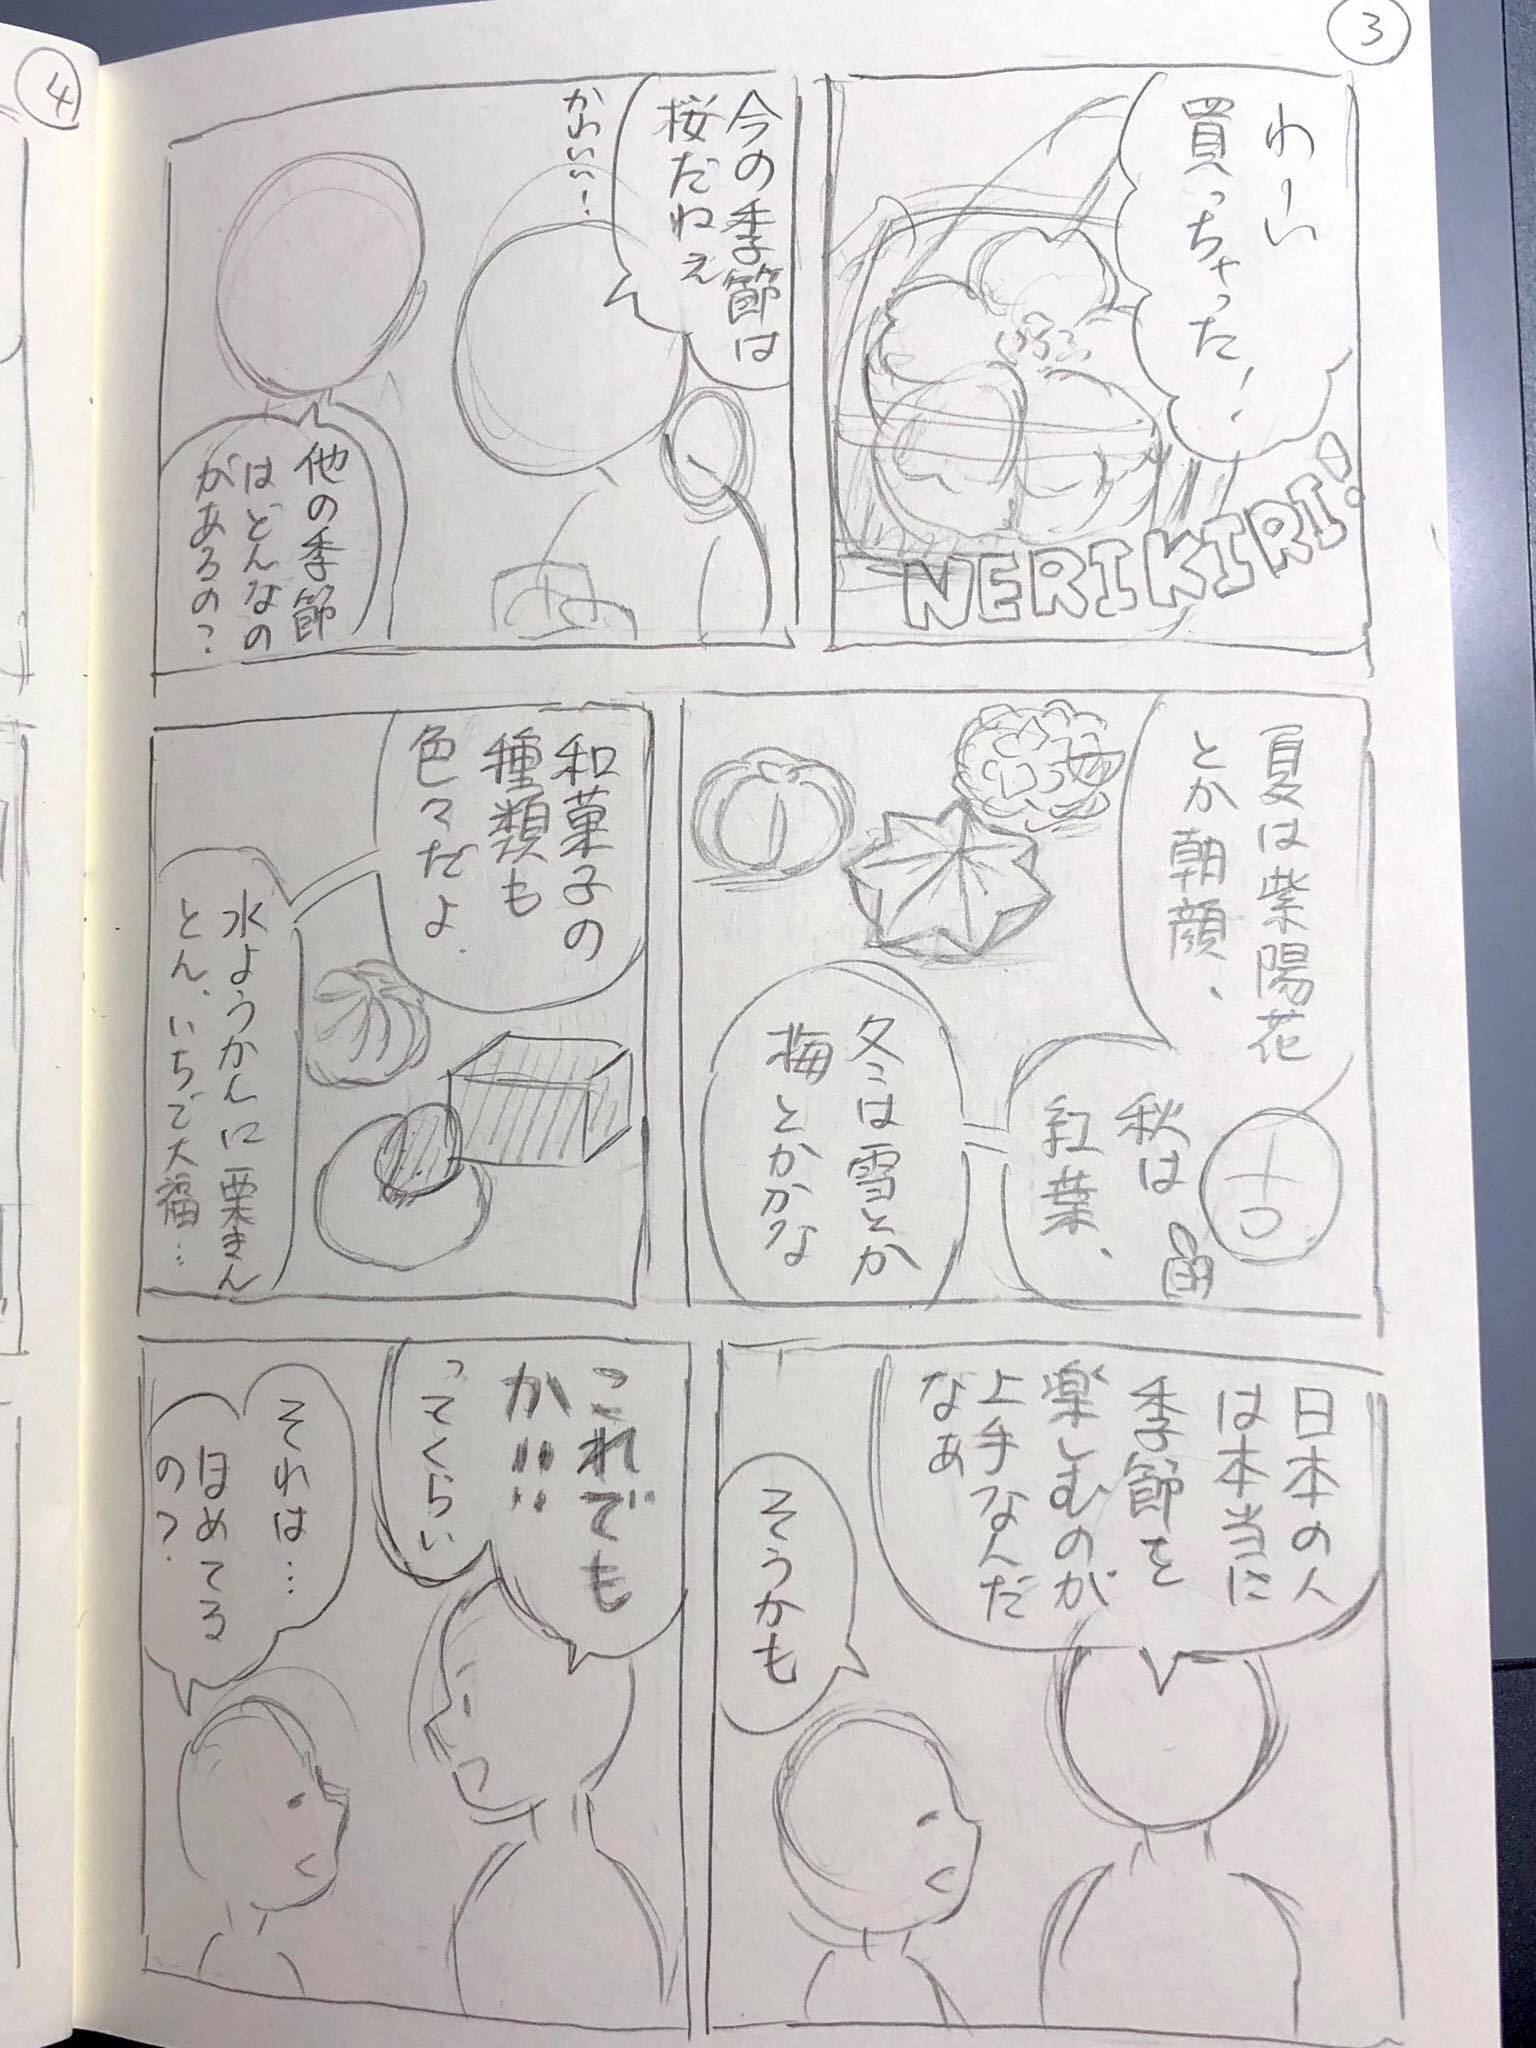 ③
わーい
買っちゃった!
NERIKIRI!
今の季節は
桜だねぇ
かわいい!
他の季節
はどんなの
があるの?
夏は紫陽花
とか朝顔、
秋は
紅葉、
冬は雪とか
梅とかかな
和菓子の
種類も
色々だよ
水ようかんに栗まん
とん、いちご大福…
日本の人
は本当に
季節を
楽しむのが
上手なんだ
なぁ
そうかも
これでも
か!!
ってくらい
それは…
ほめてる
の?
④